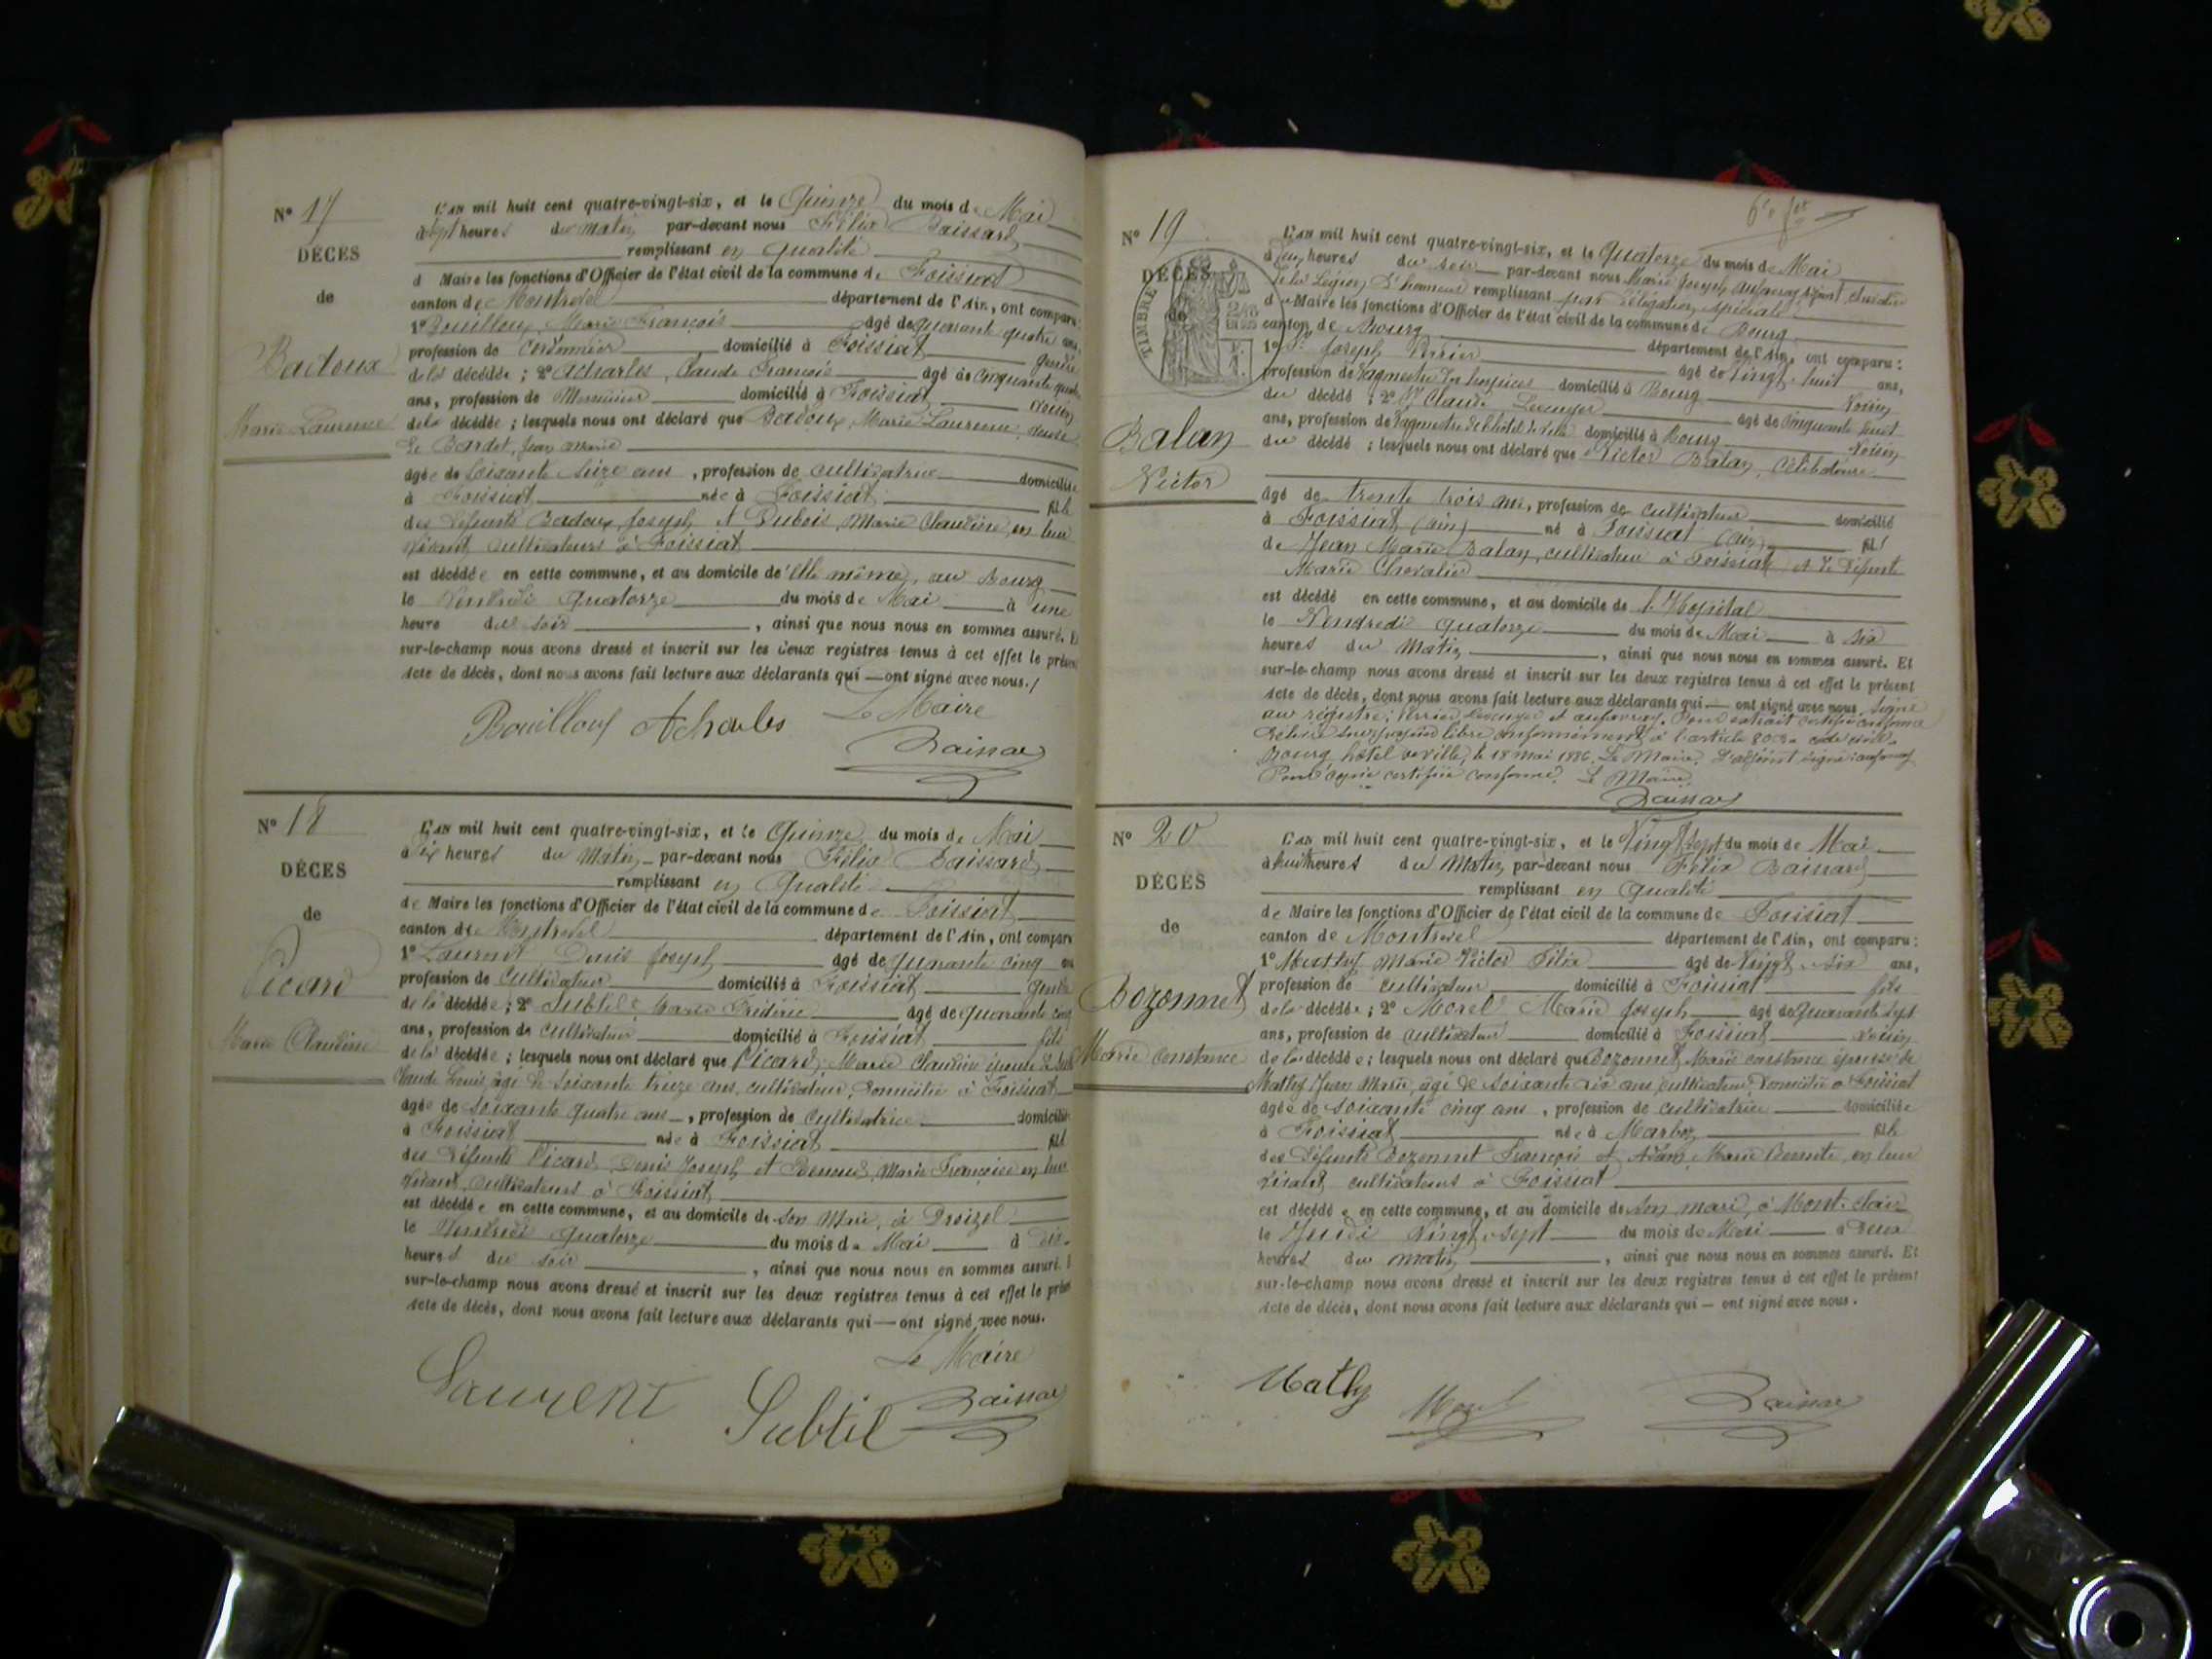 N° 17
DÉCÈS
de
Badoux
Marie Laurence
L'an mil huit cent quatre-vingt-six, et le Quinze du mois de Mai
à sept heures du matin par-devant nous Félix Baissard
remplissant en qualité
d Maire les fonctions d'Officier de l'état civil de la commune de Foissiat
canton de Montrevel département de l'Ain, ont comparu:
1° Bouilloux, Marie François âgé de quarante quatre ans,
profession de cordonnier domicilié à Foissiat gendre
de la décédée; 2° Acharles, Claude François âgé de cinquante quatre
ans, profession de Menuisier domicilié à Foissiat voisin
de la décédée; lesquels nous ont déclaré que Badoux, Marie Laurence, veuve
de Bardet, Jean Marie
âgée de soixante seize ans, profession de cultivatrice domiciliée
à Foissiat née à Foissiat fille
des défunts Badoux, Joseph et Dubois, Marie Claudine, en leur
vivant cultivateurs à Foissiat
est décédée en cette commune, et au domicile de Elle même, au Bourg
le Vendredi quatorze du mois de Mai à une
heure du soir, ainsi que nous nous en sommes assuré. Et
sur-le-champ nous avons dressé et inscrit sur les deux registres tenus à cet effet le présent
acte de décès, dont nous avons fait lecture aux déclarants qui — ont signé avec nous./
Bouilloux Acharles Le Maire
Baissard
N° 18
DÉCÈS
de
Picard
Marie Claudine
L'an mil huit cent quatre-vingt-six, et le Quinze du mois de Mai
à dix heures du Matin par-devant nous Félix Baissard
remplissant en Qualité
de Maire les fonctions d'Officier de l'état civil de la commune de Foissiat
canton de Montrevel département de l'Ain, ont comparu
1° Laurent, Denis Joseph âgé de quarante cinq ans
profession de cultivateur domicilié à Foissiat gendre
de la décédée; 2° Subtil, Marie Frédéric âgé de quarante cinq
ans, profession de cultivateur domicilié à Foissiat fils
de la décédée; lesquels nous ont déclaré que Picard, Marie Claudine épouse de Subtil
Claude Louis, âgé de soixante treize ans, cultivateur, domicilié à Foissiat
âgée de soixante quatre ans, profession de cultivatrice domiciliée
à Foissiat née à Foissiat fille
des défunts Picard, Denis Joseph et Renoud, Marie Françoise en leur
vivant, cultivateurs à Foissiat
est décédée en cette commune, et au domicile de son Mari, à Droizel
le Vendredi quatorze du mois de Mai à dix
heures du soir, ainsi que nous nous en sommes assuré. Et
sur-le-champ nous avons dressé et inscrit sur les deux registres tenus à cet effet le présent
acte de décès, dont nous avons fait lecture aux déclarants qui — ont signé avec nous.
Le Maire
Laurent Subtil Baissard
N° 19
DÉCÈS
de
TIMBRE
Balan
Victor
L'an mil huit cent quatre-vingt-six, et le Quatorze du mois de Mai
à heures du soir par-devant nous Marie Joseph Aufavray adjoint, chevalier
de la Légion d'honneur remplissant par délégation spéciale
d Maire les fonctions d'Officier de l'état civil de la commune de Bourg
canton de Bourg département de l'Ain, ont comparu:
1° Sr Joseph Perrier âgé de vingt huit ans,
profession de Vaguemestre des hospices domicilié à Bourg voisin
du décédé; 2° Sr Claude Levenger âgé de cinquante huit
ans, profession de Vaguemestre de l'hôtel de ville domicilié à Bourg voisin
du décédé; lesquels nous ont déclaré que Victor Balan, célibataire
âgé de trente trois ans, profession de cultivateur domicilié
à Foissiat (Ain) né à Foissiat (Ain) fils
de Jean Marie Balan, cultivateur à Foissiat, et de défunte
Marie Chevalier
est décédé en cette commune, et au domicile de l'Hopital
le Vendredi quatorze du mois de Mai à six
heures du Matin, ainsi que nous nous en sommes assuré. Et
sur-le-champ nous avons dressé et inscrit sur les deux registres tenus à cet effet le présent
acte de décès, dont nous avons fait lecture aux déclarants qui — ont signé avec nous. Signé
au registre: Perrier Levenger et aufavray. Pour extrait certifié conforme
délivré sur papier libre conformément à l'article 80 du code civil.
Bourg, hôtel de ville, le 18 mai 1886. Le Maire, L'adjoint signé: aufavray
Pour copie certifiée conforme. Le Maire
Baissard
N° 20
DÉCÈS
de
Bozonnet
Marie Constance
L'an mil huit cent quatre-vingt-six, et le Vingt sept du mois de Mai
à huit heures du Matin par-devant nous Félix Baissard
remplissant en Qualité
de Maire les fonctions d'Officier de l'état civil de la commune de Foissiat
canton de Montrevel département de l'Ain, ont comparu:
1° Mathy Marie Victor Félix âgé de Vingt-six ans,
profession de cultivateur domicilié à Foissiat fils
de la décédée; 2° Morel Marie Joseph âgé de quarante sept
ans, profession de cultivateur domicilié à Foissiat voisin
de la décédée; lesquels nous ont déclaré que Bozonnet, Marie constance épouse de
Mathy Jean Marie, âgé de soixante dix ans, cultivateur, domicilié à Foissiat
âgée de soixante cinq ans, profession de cultivatrice domiciliée
à Foissiat née à Marboz fille
des défunts Bozonnet François et Adam, Marie Pernette, en leur
vivant cultivateurs à Foissiat
est décédée en cette commune, et au domicile de son mari, à Mont-clair
le Jeudi Vingt-sept du mois de Mai à deux
heures du matin, ainsi que nous nous en sommes assuré. Et
sur-le-champ nous avons dressé et inscrit sur les deux registres tenus à cet effet le présent
acte de décès, dont nous avons fait lecture aux déclarants qui — ont signé avec nous.
Mathy Morel Baissard